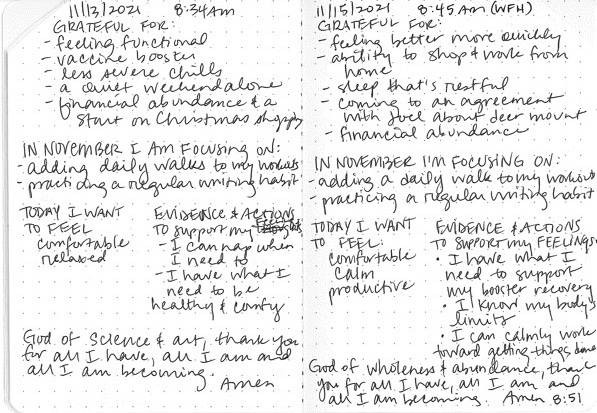 11/13/2021 8:34am
GRATEFUL FOR:
- feeling functional
- vaccine booster
- less severe chills
- a quiet weekend alone
- financial abundance & a
start on Christmas shopping
IN NOVEMBER I AM FOCUSING ON:
- adding daily walks to my workouts
- practicing a regular writing habit
TODAY I WANT
TO FEEL
comfortable
relaxed
EVIDENCE & ACTIONS
TO support my
- I can nap when
I need to
- I have what I
need to be
healthy & comfy
God of science & art, thank you
for all I have, all I am and
all I am becoming.
Amen
11/15/2021 8:45 Am (WFH)
GRATEFUL FOR:
- feeling better more quickly
- ability to shop & work from
home
- sleep that's restful
- coming to an agreement
with Joel about deer mount
- financial abundance
IN NOVEMBER I'M FOCUSING ON:
- adding a daily walk to my workout
- practicing a regular writing habit
TODAY I WANT
TO FEEL:
comfortable
calm
productive
EVIDENCE & ACTIONS
TO SUPPORT my FEELINGS
• I have what I
need to support
my booster recovery
• I know my body's
limits
• I can calmly work
toward getting things done
God of wholeness & abundance, thank
you for all I have, all I am and
all I am becoming. Amen 8:51